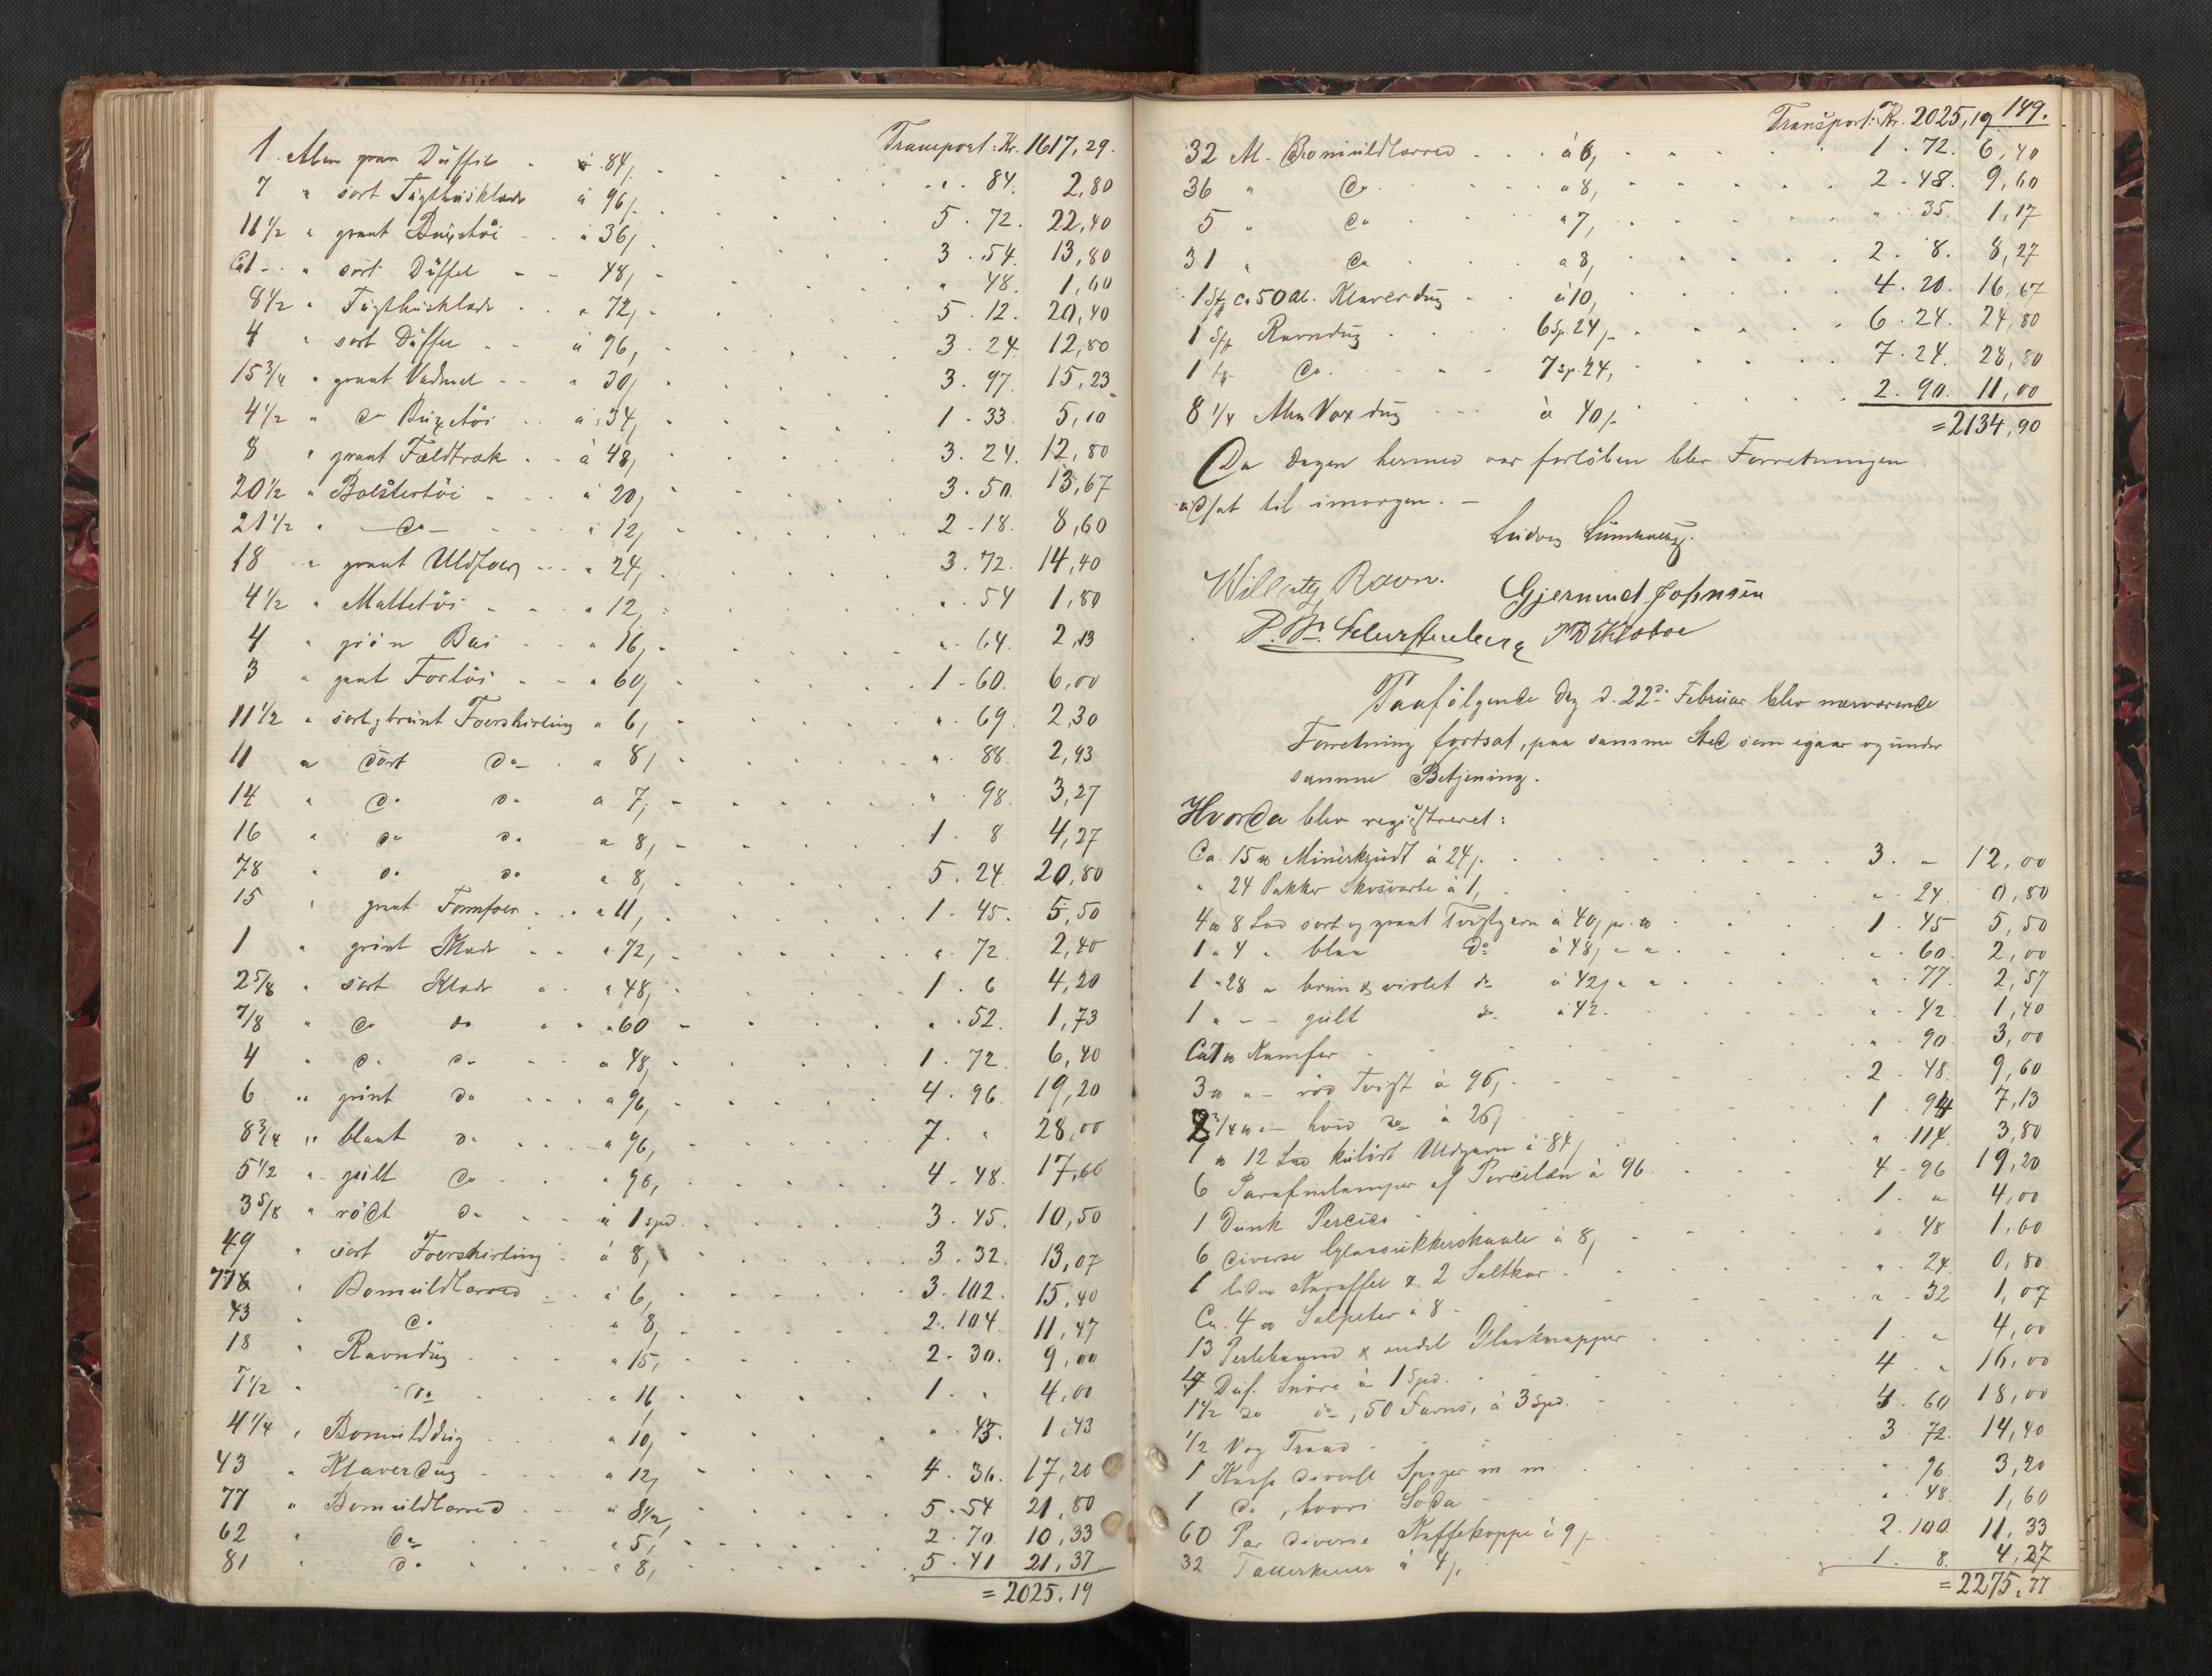 Transport: Kr. 1617,29.
1 Alen graa Düffel - à 84, " . 84. 2,80
7 " sort Tugthusklæde à 96, 5 . 72. 22,40
11 1/2 " graat Buxetöi - " 36, 3 . 54. 13,80
Ca 1 - " sort Düffel - - 48, " 48. 1,60
8 1/2 " Tugthusklæde " 72, 5 . 12. 20,40
4 " sort Düffel - - à 96, 3 . 24. 12,80
15 3/4 " graat Vadmel - - " 30, 3 . 97. 15,23
4 1/2 " do Buxetöi - à 34, 1 . 33. 5,10
8 " graat Fældtræk - à 48, 3. 24. 12,80
20 1/2 " Bolstertöi - à 20, 3 . 50. 13,67
21 1/2 " - do - " 12, 2 - 18. 8,60
18 " graat Uldfoer - " 24, 3 . 72. 14,40
4 1/2 " Mattetöi - " 12, " . 54 1,80
4 " grön Bai " 16, " . 64. 2,13
3 " graat Fortöi - - " 60, 1 - 60. 6,00
11 1/2 " sort g brunt Foershirting " 6, " . 69. 2,30
11 " sort do - " 8, " . 88. 2,93
14 " do do a 7, " 98. 3,27
16 " do do " 8, 1 . 8 4,27
78 " do do " 8, 5 . 24. 20,80
15 " graat Foer " 11, 1 . 45. 5,50
1 " grönt Klæde - - " 72, " . 72. 2,40
2 5/8 " sort Klæde " 48, 1 . 6 4,20
7/8 " do do " 60 " . 52. 1,73
4 " do do " 48, 1 . 72. 6,40
6 " grönt do " 96, 4 . 96. 19,20
8 3/4 " blaat do " 96, 7. " 28,00
5 1/2 " gült do " 96, 4 . 48. 17,60
3 5/8 " rödt do à 1 spd. 3 . 45. 10,50
49 " sort Foershirting à 8, 3 . 32. 13,07
77 " Bomuldlærred à 6, 3. 102. 15,40
43 " do " 8, 2. 104. 11,47
18 " Ravndug " 15, 2 - 30. 9,00
7 1/2 " do " 16 1 . " 4,00
4 1/4 " Bomulddug " 10, " . 43. 1,43
43 " Klaverdug " 12, 4 . 36. 17,20
77 " Bomuldlærred " 8 1/2, 5 . 54 21,80
62 " do " 5, 2 . 70. 10,33
81 " do " 8, 5 . 41 21,37
= 2025,19
149.
Transport: Kr. 2025,19
32 Al - Bomuldlærred à 6, 1 . 72. 6,40
36 " do " 8, 2 . 48. 9,60
5 " do " 7, " . 35. 1,17
31 " do a 8, 2 . 8. 8,27
1 St ca 50 Al. Klaverdug à 10, 4 . 20. 16,67
1 St Ravndug 6 Sp. 24, 6 . 24. 24,80
1 St do 7 sp. 24, 7 . 24. 28,80
8 1/4 Alen Vox dug à 40, 2. 90. 11,00
= 2134,90
Da dagen hermed var forlöben blev Forretningen
udsat til imorgen. -
Gjermund Johnsen
Paafölgende Dag d. 22d: Februar blev nærværende
Forretning fortsat, paa samme Sted som igaar og under
samme Betjening.
Hvorda blev registreret:
Ca. 15 ℔ à 24, 3. - 12,00
" 24 Pakker Skosværte à 1, " . 24. 0,80
4 ℔ 8 Lod sort og graat Tvistgarn à 40, pr. ℔ 1 . 45 5,50
1 " 4 " blaa do à 48, " " " . 60. 2,00
1 " 28 " brun & violet do à 42, " " " . 77. 2,57
1 " - - gült do " 42. " . 42 1,40
Ca 1 ℔ Kamfer " . 90 3,00
3 ℔ " - röd Tvist à 96, 2 . 48. 9,60
3/4 ℔ " - hvid do à 26, 1 . 94 7,13
1 ℔ 12 Lod kulört Uldgarn à 84, " . 114. 3,80
6 Parafinlamper af Porcelæn à 96. 4 - 96 19,20
1 Dunk 1. " 4,00
6 diverse Glassukkerskaale à 8, " . 48 1,60
1 liden Karaffel & 2 Saltkar " . 24. 0,80
Ca. 4 ℔ Salpeter à 8 " . 32 1,07
13 Perlebaand & endel Glasknapper 1. " 4,00
4 Dus. Snöre à 1 Spd. 4 . " 16,00
1 1/2 do do, 50 Favns, à 3 Spd. 4 . 60 18,00
1/2 Vog Traad 3 . 72. 14,40
1 Kasse diverse Spiger m. m. " 96 3,20
1 do, hvori Soda " . 48. 1,60
60 Par diverse Kaffekoppe à 9, 2. 100. 11,33
32 Tallerkener à 4, 1. 8. 4,27
= 2275,77